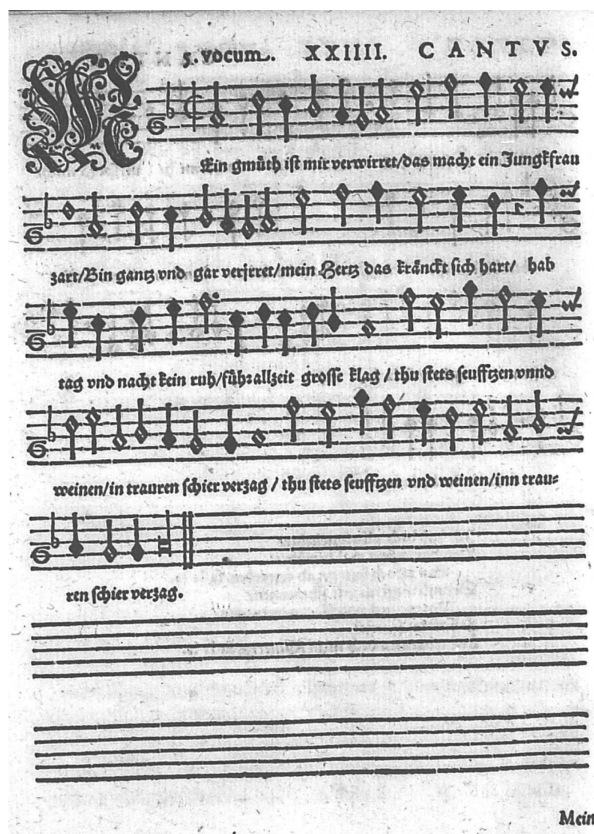 5. vocum. XXIIII. CANTVS.
MEin gmüth ist mir verwirret/das macht ein Jungkfrau
zart/Bin gantz vnd gar verjrret/mein Hertz das kränckt sich hart/ hab
tag vnd nacht kein ruh/führ allzeit grosse klag / thu stets seufftzen vnnd
weinen/in trauren schier verzag / thu stets seufftzen vnd weinen/inn trau⸗
ren schier verzag.
Mein